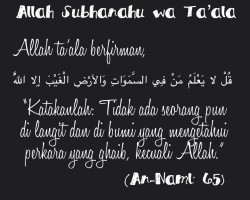 Allah Subhanahu wa Ta'ala
Allah ta'ala berfirman,
قُلْ لَا يَعْلَمُ مَنْ فِي السَّمَوَاتِ وَالأَرْضِ الْغَيْبَ إِلا اللَّهُ
"Katakanlah: Tidak ada seorang pun
di langit dan di bumi yang mengetahui
perkara yang ghaib, kecuali Allah."
(An-Naml: 65)